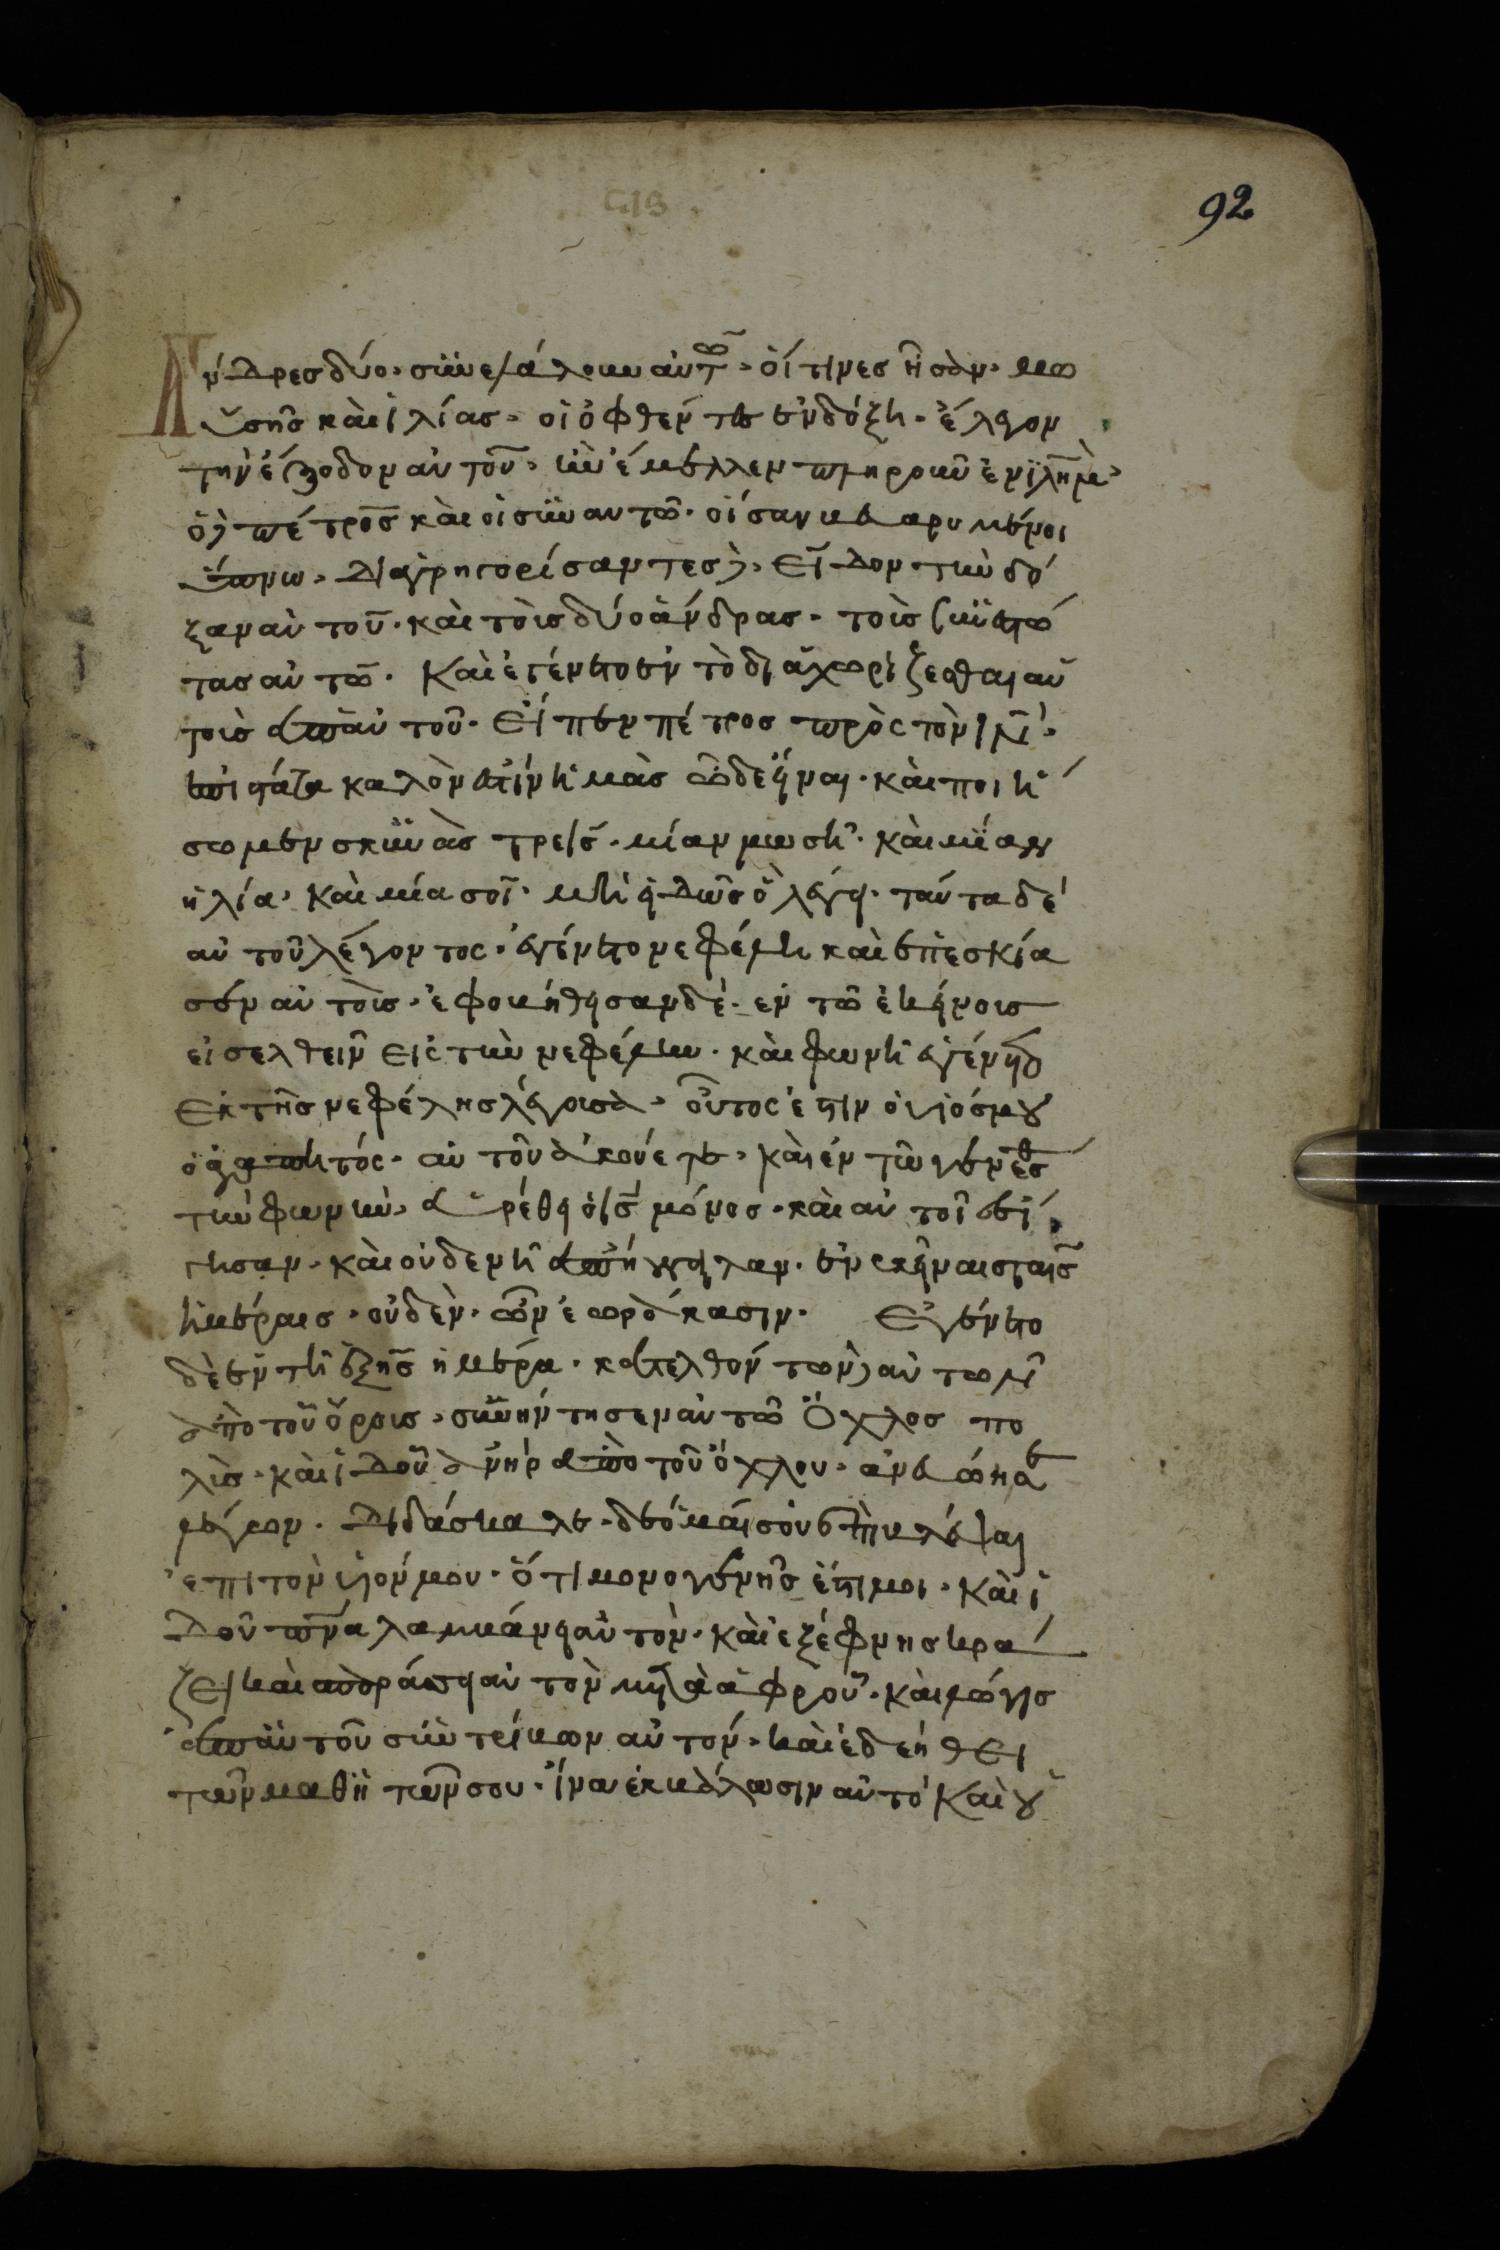 92
Ἄνδρες δύο· σὺνελάλουν αὐτῶ· οἵτινες ἦσὰν· μω
ϋσῆς καὶ ἰλίας· οἱ ὀφθέντες ἐν δόξη· ἔλεγον
τὴν ἔξοδον αὐτοῦ· ἣν ἔμελλεν πληροῦν ἐν ϊλῆμ·
ὁ δὲ πέτρος καὶ οἱ σὺν αυτῶ· οἴσαν βεβαρυμένοι
ὕπνω· διαγρηγορίσαντες δὲ· εἶδον τὴν δό
ξαν αὐτοῦ· καὶ τοὺς δύο ἄνδρας· τοὺς συνεστώ
τας αὐτῶ· Καὶ ἐγένετο ἐν τὸ διαχωρίζεσθαι αὐ
τοὺς ἀπ' αὐτοῦ· Εἶπεν πέτρος πρὸς τὸν ιν·
ἐπιστάτα καλὸν ἐστὶν ἡμὰς ὧδε εἶναι· καὶ ποιή
σωμεν σκηνὰς τρεῖς· μίαν μωσῆ· καὶ μίαν
ηλία· καὶ μία σοῖ· μὴ εἰδὼς ὃ λέγει· ταύτα δὲ
αὐτοῦ λέγοντος· ἐγένετο νεφέλη καὶ ἐπεσκία
σεν αὐτοὶς· ἐφοβήθησαν δὲ· ἐν τῶ ἐκείνους
εἰσελθεῖν εἰς τὴν νεφέλην· καὶ φωνὴ ἐγένετο
ἐκ τῆς νεφέλης λέγουσα· οὗτος ἐστιν ὁ υἱός μου
ὁ ἀγαπητός· αὐτοῦ ἀκούετε· καὶ ἐν τῶ γενέσθαι
τὴν φωνὴν· εὑρέθη ὁ ις μόνος· καὶ αὐτοὶ ἐσί
γησαν· καὶ οὐδενὶ ἀπήγγειλαν· ἐν ἐκείναις ταῖς
ἡμέραις· οὐδὲν· ὧν ἐωράκασιν· Ἐγένετο
δὲ ἐν τῆ ἑξῆς ἡμέρα· κατελθόντων δὲ αὐτῶν
ἀπὸ τοῦ ὄρους· σὺνήντησεν αὐτῶ ὄχλος πο
λὺς· καὶ ἰδοῦ ἀνὴρ ἀπὸ τοῦ ὄχλου· ἀνεβόησε
λέγων· Διδάσκαλε· δεόμαι σοὺ ἐπιβλέψαι
ἐπι τὸν υἱον μου· ὅτι μονογενὴς ἐστι μοι· Καὶ ἰ
δοῦ πνα λαμβάνει αὐτὸν· καὶ ἐξέφνης κρά
ζει καὶ σπαράσει αὐτὸν μετὰ ἀφροῦ· καὶ μόγις
ἀπ' αὐτοῦ σὺντρίβων αὐτόν· καὶ ἐδεήθει
τῶν μαθητῶν σου· ἵνα ἐκβάλωσιν αὐτὸ Καὶ οὐ